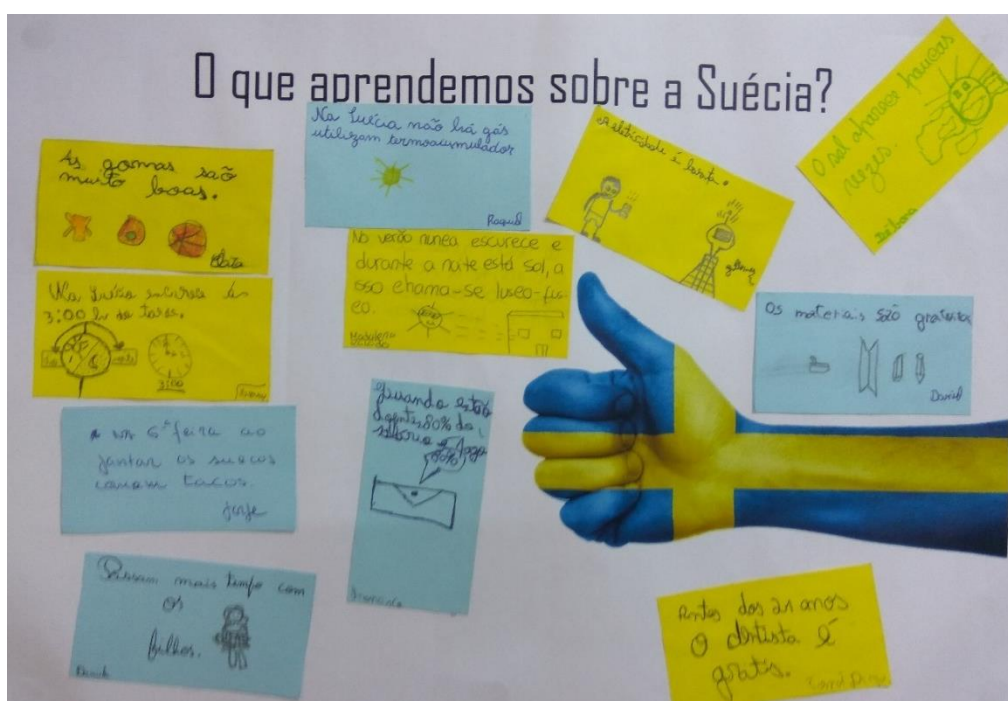 O que aprendemos sobre a Suécia?
As gomas são
muito boas.
Na Suécia não há gás
utilizam termoacumulador
Raquel
A eletricidade é barata.
O sol aparece poucas
vezes.
Débora
Na Suécia escurece às
3:00 h da tarde.
3:00
No verão nunca escurece e
durante a noite está sol, a
isso chama-se lusco-fus
co.
Madalena
Os materiais são gratuitos
Daniel
6ª feira ao
jantar os suecos
comem tacos.
Jorge
Quando estão
doentes 80% do
salário é pago
80%
Passam mais tempo com
os
filhos.
Antes dos 21 anos
o dentista é
grátis.